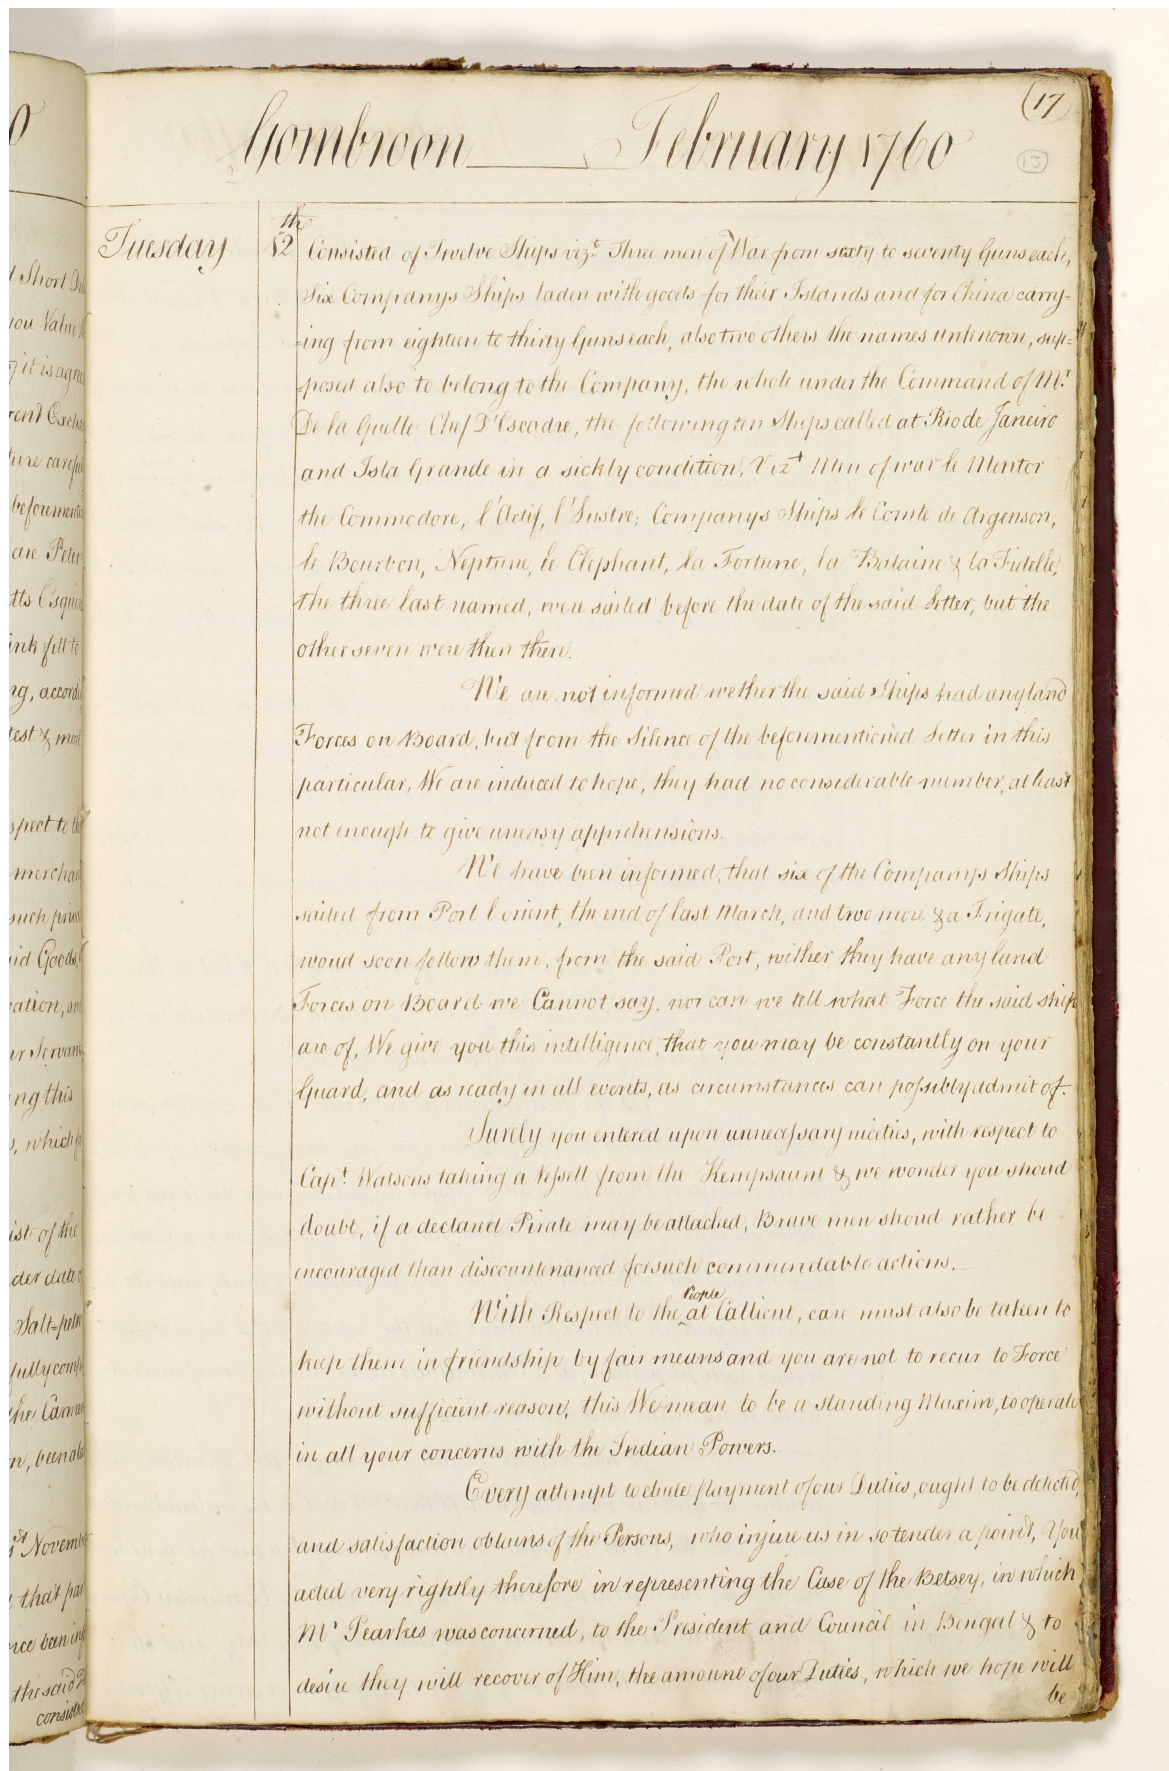 17
Gombroon February 1760
13
Tuesday
12th
Consisted of Twelve Ships vizt. Three men of War from sixty to seventy Guns each,
Six Companys Ships laden with goods for their Islands and for China carry=
=ing from eighteen to thirty Guns each, also two others the names unknown, sup=
=posed also to belong to the Company, the whole under the Command of Mr.
De la Guelle Chef D'Escadre, the following ten Ships called at Rio de Janeiro
and Isla Grande in a sickly condition, Vizt Men of war le Mentor
the Commodore, l'Actif, l'Lustre; Companys Ships le Comte de Argenson,
le Bourbon, Neptune, le Elephant, la Fortune, la Balaine & la Fidelle,
the three last named, were sailed before the date of the said Letter, but the
other seven were then there.
We are not informed wether the said Ships had any land
Forces on Board, but from the Silence of the beforementioned Letter in this
particular, We are induced to hope, they had no considerable number, at least
not enough to give uneasy apprehensions.
We have been informed, that six of the Companys Ships
sailed from Port l'orient, the end of last March, and two more & a Frigate,
woud soon follow them, from the said Port, wither they have any land
Forces on Board we Cannot say, nor can we tell what Force the said ship
are of, We give you this intelligence, that you may be constantly on your
Guard, and as ready in all events, as circumstances can possibly admit of.
Surely you entered upon unnecessary niceties, with respect to
Capt. Watsons taking a Vessell from the Kempsaunt & we wonder you shoud
doubt, if a declared Pirate may be attacked, Brave men shoud rather be
encouraged than discountenanced for such commendable actions.
With Respect to the People at Callicut, care must also be taken to
keep them in friendship by fair means and you are not to recur to Force
without sufficient reason, this We mean to be a standing Maxim, to operate
in all your concerns with the Indian Powers.
Every attempt to elude payment of our Duties, ought to be detected,
and satisfaction obtains of the Persons, who injure us in so tender a point, You
acted very rightly therefore in representing the Case of the Betsey, in which
Mr Pearkes was concerned, to the President and Council in Bengal & to
desire they will recover of Him, the amount of our Duties, which we hope will
be